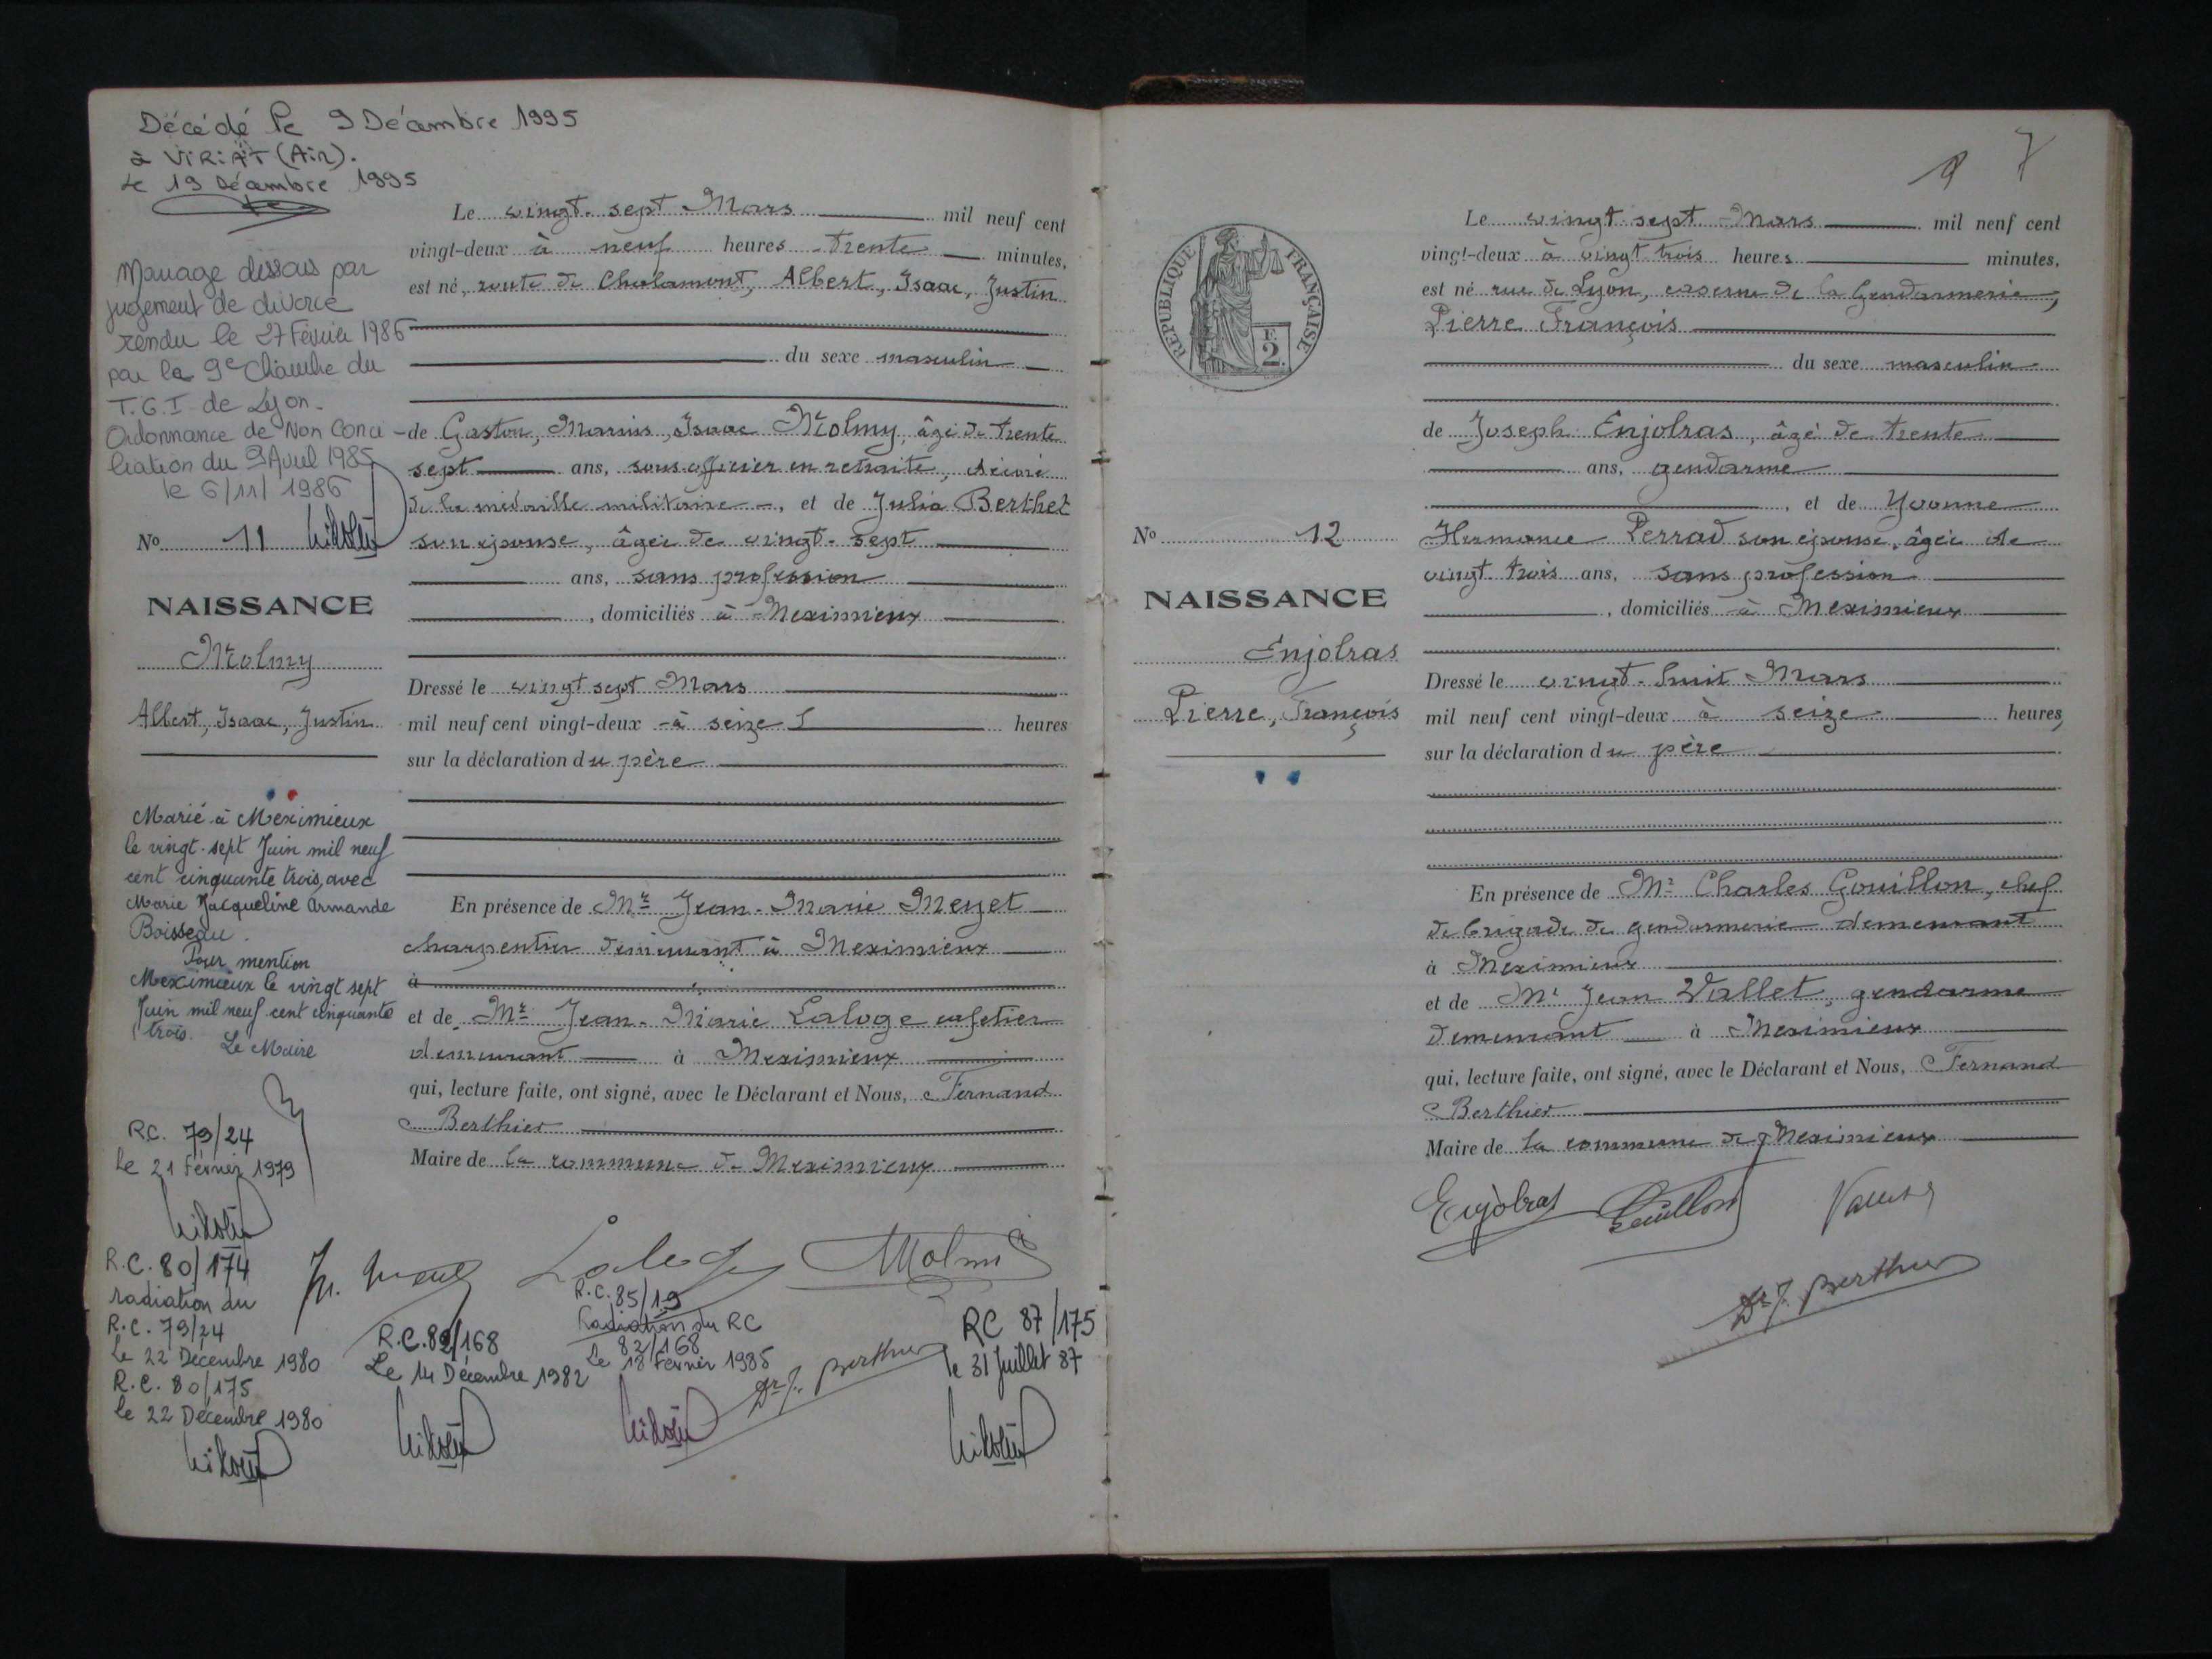 Décédé le 9 Décembre 1995
à VIRIAT (Ain).
Le 19 Décembre 1995
Mariage dissous par
jugement de divorce
rendu le 27 Février 1986
par la 9e Chambre du
T.G.I de Lyon.
Ordonnance de Non Conci-
liation du 9 Avril 1985
le 6/11/1986
No 11
NAISSANCE
Molmy
Albert, Isaac, Justin
Marié à Meximieux
le vingt-sept Juin mil neuf
cent cinquante trois, avec
Marie Jacqueline Armande
Boisseau.
Pour mention
Meximieux le vingt sept
Juin mil neuf cent cinquante
trois. Le Maire
RC. 79/24
le 21 Février 1979
R.C. 80/174
radiation du
R.C. 79/24
Le 22 Décembre 1980
R.C. 80/175
le 22 Décembre 1980
Le vingt-sept Mars mil neuf cent
vingt-deux à neuf heures trente minutes,
est né, route de Chalamont, Albert, Isaac, Justin
du sexe masculin
de Gaston, Marius, Isaac Molmy, âgé de trente
sept ans, sous-officier en retraite, décoré
de la médaille militaire, et de Julia Berthet
son épouse, âgée de vingt-sept
ans, sans profession
, domiciliés à Meximieux
Dressé le vingt sept Mars
mil neuf cent vingt-deux à seize heures
sur la déclaration du père
En présence de Mr Jean-Marie Meyet
charpentier demeurant à Meximieux
à
et de Mr Jean-Marie Laloge cafetier
demeurant à Meximieux
qui, lecture faite, ont signé, avec le Déclarant et Nous, Fernand
Berthier
Maire de la commune de Meximieux
Laloge Molmy
R.C. 82/168
Le 14 Décembre 1982
R.C. 85/19
Radiation du RC
82/168
Le 18 Février 1985
Dr F. Berthier
RC 87/175
le 31 Juillet 87
7
REPUBLIQUE FRANÇAISE
E
2
No 12
NAISSANCE
Enjolras
Pierre, François
Le vingt-sept Mars mil neuf cent
vingt-deux à vingt trois heures minutes,
est né rue de Lyon, caserne de la Gendarmerie,
Pierre François
du sexe masculin
de Joseph Enjolras, âgé de trente
ans, gendarme
, et de Yvonne
Hermance Perrad son épouse, âgée de
vingt-trois ans, sans profession
, domiciliés à Meximieux
Dressé le vingt-huit Mars
mil neuf cent vingt-deux à seize heures,
sur la déclaration du père
En présence de Mr Charles Gouillon, chef
de brigade de gendarmerie demeurant
à Meximieux
et de Mr Jean Vallet, gendarme
demeurant à Meximieux
qui, lecture faite, ont signé, avec le Déclarant et Nous, Fernand
Berthier
Maire de la commune de Meximieux
Enjolras Gouillon Vallet
Dr F. Berthier